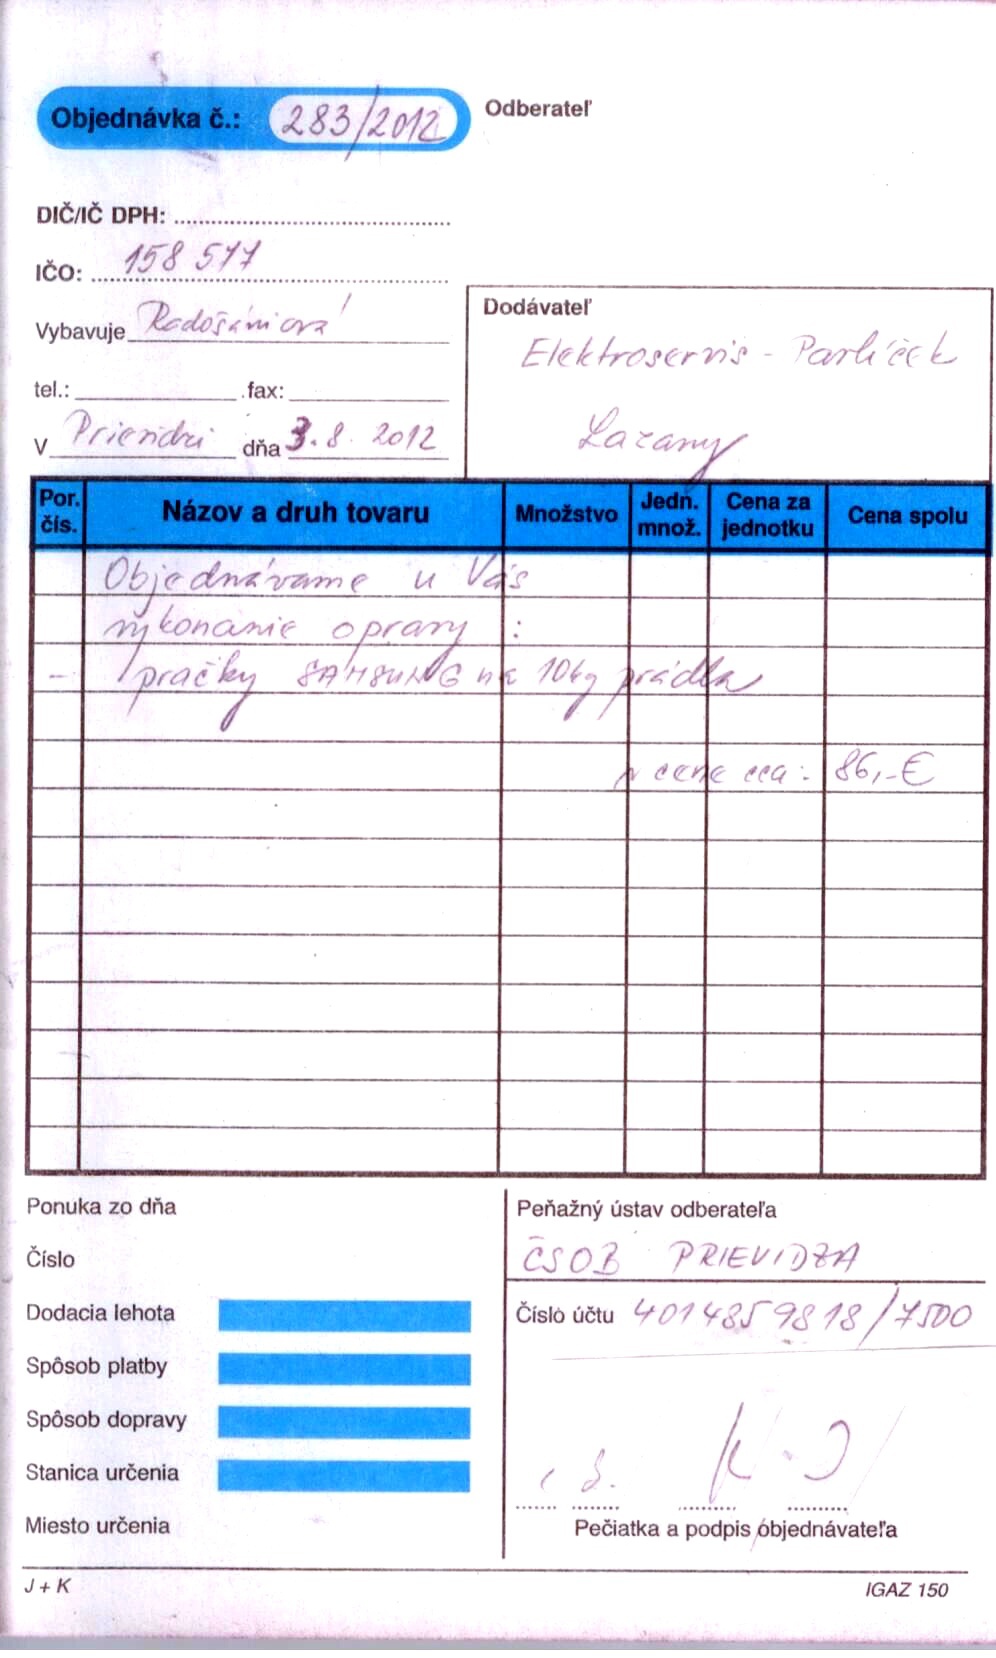 Objednávka č.: 283/2012
Odberateľ
DIČ/IČ DPH:
IČO: 158 577
Vybavuje Radošániová
tel.: fax:
V Prievidzi dňa 3.8. 2012
Dodávateľ
Elektroservis - Pavlíček
Lazany
Por. čís. Názov a druh tovaru Množstvo Jedn. množ. Cena za jednotku Cena spolu
Objednávame u Vás
vykonanie opravy :
- pračky SAMSUNG na 10kg prádla
v cene cca: 86,-€
Ponuka zo dňa
Číslo
Dodacia lehota
Spôsob platby
Spôsob dopravy
Stanica určenia
Miesto určenia
Peňažný ústav odberateľa
ČSOB PRIEVIDZA
Číslo účtu 4014859818/7500
Pečiatka a podpis objednávateľa
J + K
IGAZ 150